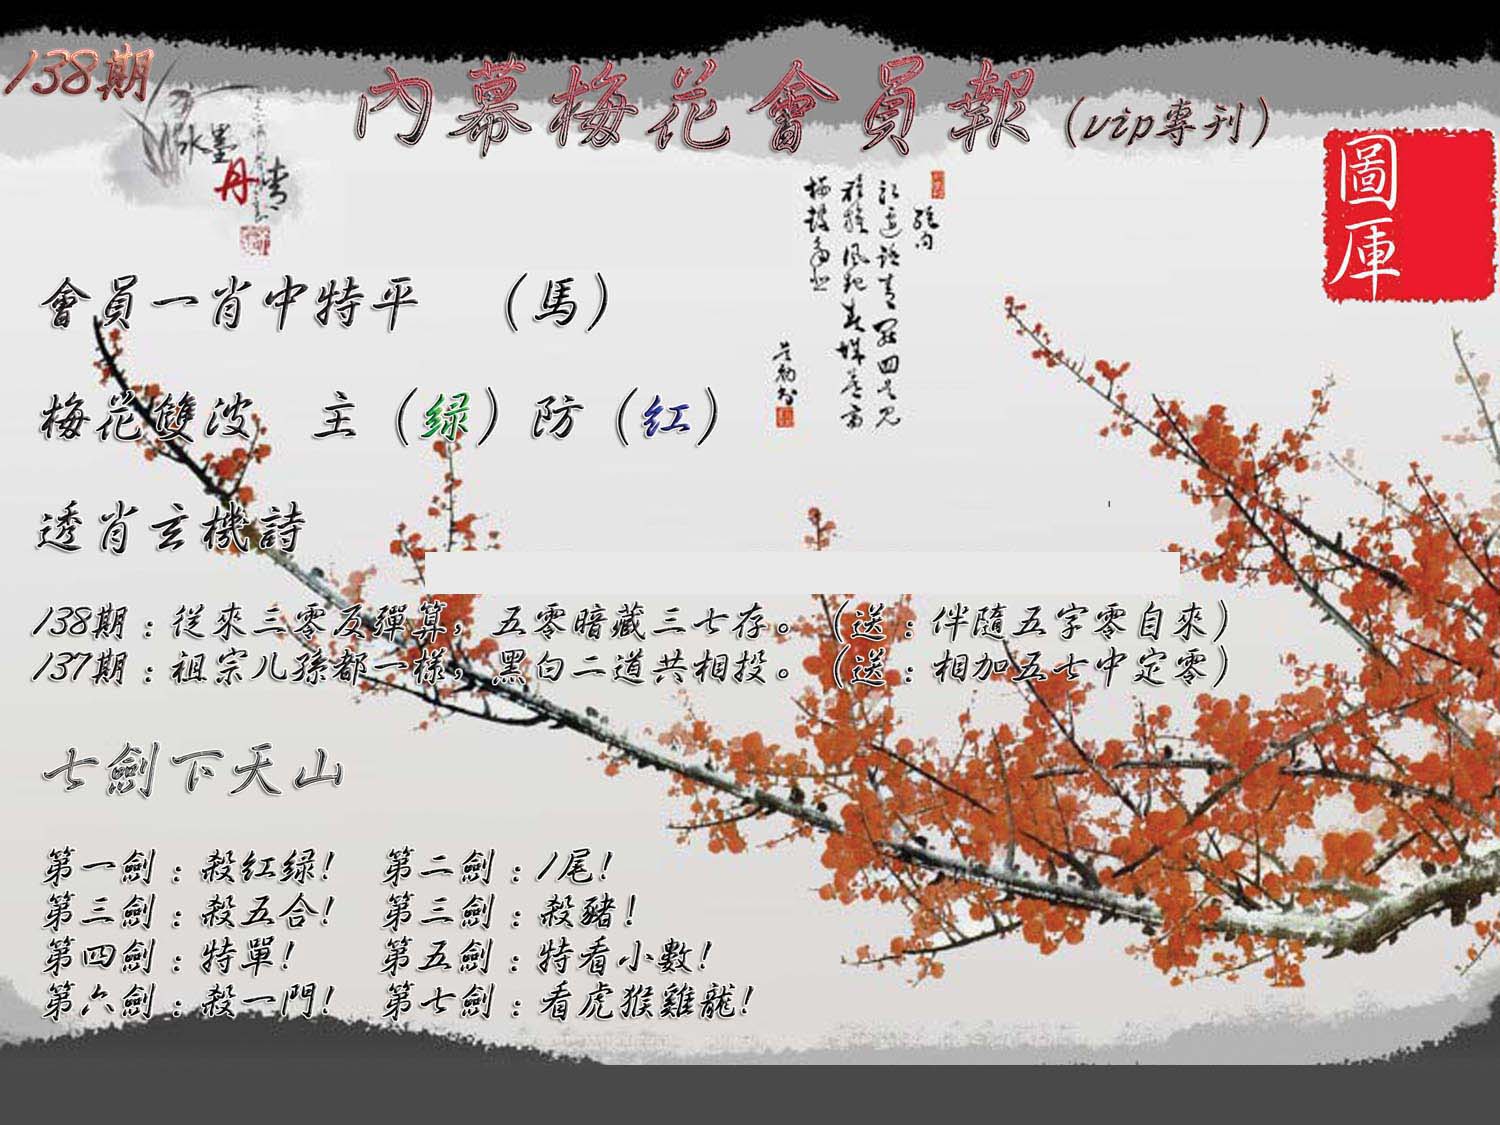 138期
內幕梅花會員報（vip專刊）
水墨
丹青
圖庫
會員一肖中特平　（馬）
梅花雙波　主（绿）防（红）
透肖玄機詩
138期：從來三零反彈算，五零暗藏三七存。（送：伴隨五字零自來）
137期：祖宗儿孫都一樣，黑白二道共相投。（送：相加五七中定零）
七劍下天山
第一劍：殺红绿!　第二劍：1尾!
第三劍：殺五合!　第三劍：殺豬!
第四劍：特單!　第五劍：特看小數!
第六劍：殺一門!　第七劍：看虎猴雞龍!